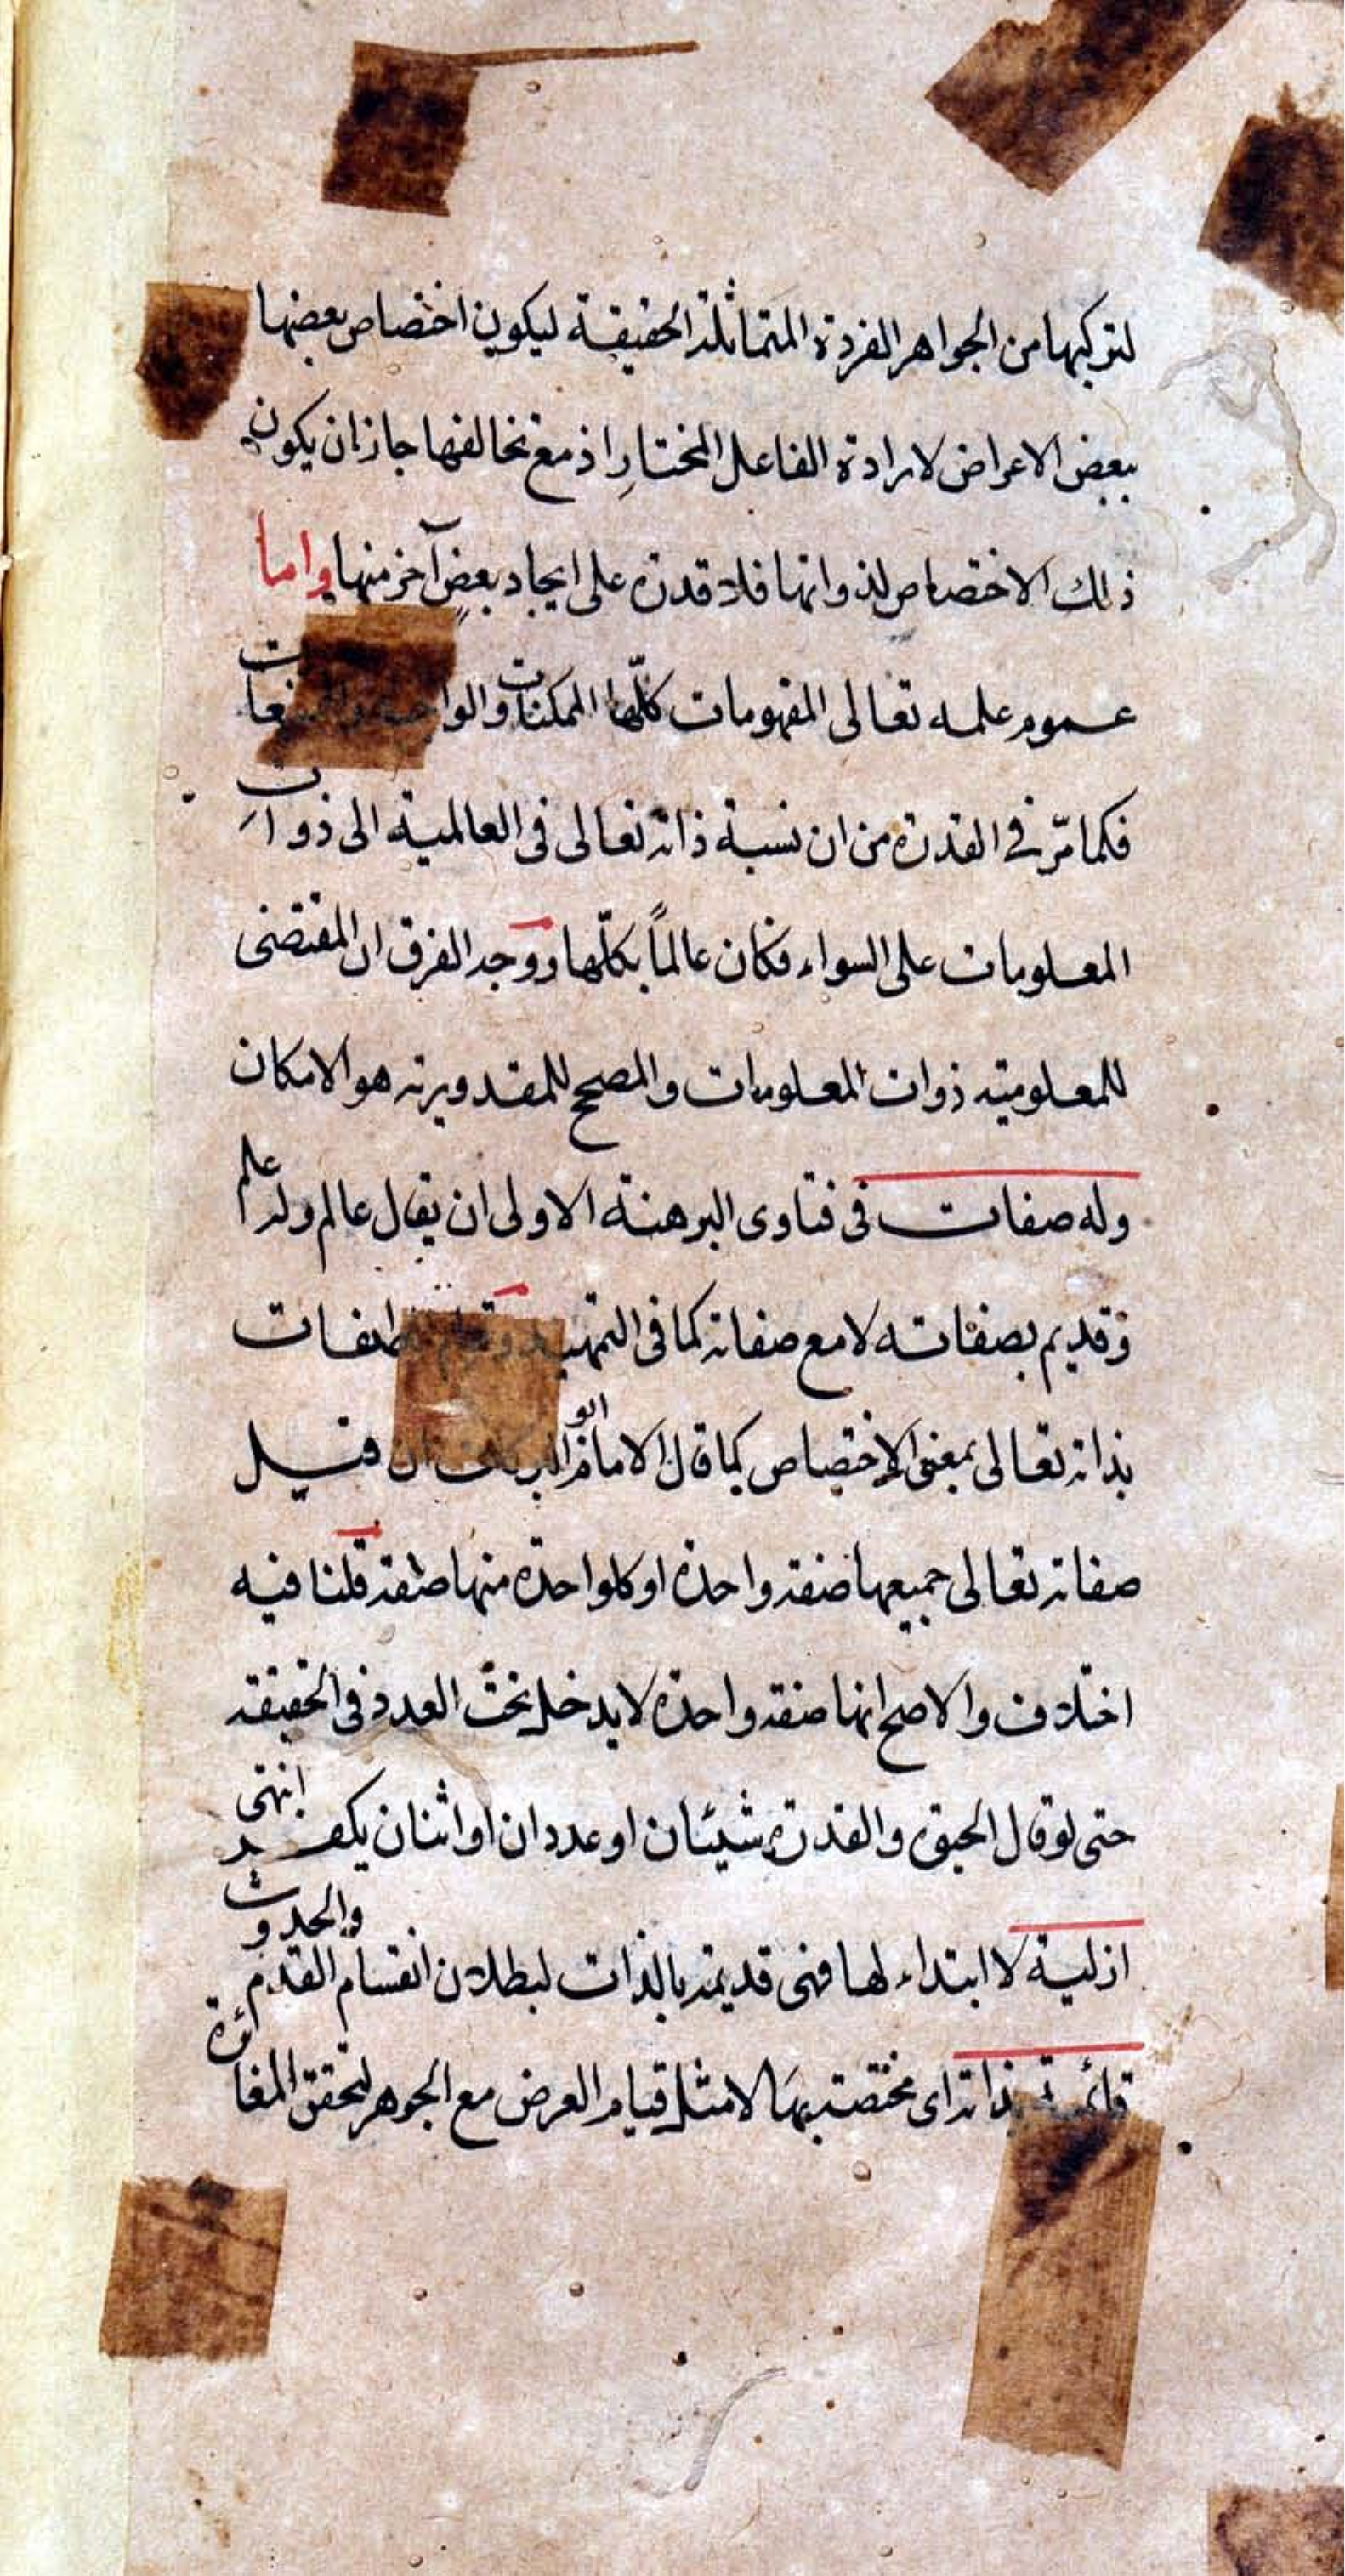 لتركبها من الجواهر الفردة المتماثلة الحقيقة ليكون اختصاص بعضها
ببعض الاعراض لارادة الفاعل المختار اذ مع تخالفها جاز ان يكون
ذلك الاختصاص لذواتها فلا قدرة على ايجاد بعضٍ آخر منها واما
عموم علمه تعالى المفهومات كلّها الممكنات والواجبة والممتنعات
فكما مرّ في القدرة من ان نسبة ذاته تعالى فى العالمية الى ذوات
المعلومات على السواء فكان عالماً بكلّها ووجه الفرق ان المقتضى
للمعلومية ذوات المعلومات والمصحح للمقدورية هو الامكان
وله صفات فى فتاوى البرهنة الاولى ان يقال عالم وله علم
وقديم بصفاته لا مع صفاته كما فى التمهيد وقيام الصفات
بذاته تعالى بمعنى الاختصاص كما قال الامام ابو البركات ان قيل
صفاته تعالى جميعها صفة واحدة او كل واحدة منها صفة قلنا فيه
اختلاف والاصح انها صفة واحدة لا يدخل تحت العدد فى الحقيقة
حتى لو قال الحيوة والقدرة شيئان او عددان او اثنان يكفر انتهى
ازلية لا ابتداء لها فهى قديمة بالذات لبطلان انقسام القدم والحدوث
قائمة بذاته اى مختصة بها لا مثل قيام العرض مع الجوهر لتحقق المغائرة